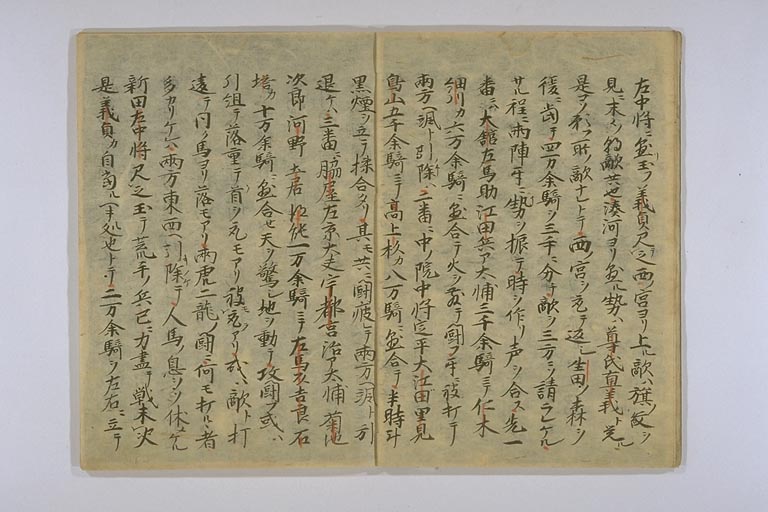 左中将ニ追玉フ義貞見之西ノ宮ヨリ上ル敵ハ旗ノ紋ヲ
見ニ末々ノ朝敵共也湊河ヨリ追ル勢ハ尊氏直義ト覚ル
是コソ願フ所ノ敵ナレトテ西ノ宮ヨリ取テ返シ生田ノ森ヲ
後ニ当テ四万余騎ヲ三手ニ分テ敵ヲ三方ニ請ラレケル
サル程ニ両陣互ニ勢ヲ振テ時ヲ作リ声ヲ合ス先一
番ニハ大舘左馬助江田兵ア大輔三千余騎ニテ仁木
細川カ六万余騎ニ追合テ火ヲ散テ闘フ互ニ被打テ
両方ヘ颯ト引除ハ二番ニ中ノ院中将定平大江田里見
鳥山五千余騎ニテ高上杉カ八万騎ニ追合テ半時計
黒煙ヲ立テ揉合タリ其モ共ニ闘疲レテ両方ヘ颯ト引
退ケハ三番ニ脇屋左京大夫宇都宮治ア大輔菊池
次郎河野土居得能一万余騎ニテ左馬頭吉良石
塔カ十万余騎ニ追合セ天ヲ驚シ地ヲ動テ攻闘フ或ハ
引組テ落重テ首ヲ取モアリ被取モアリ或ハ敵ト打
違テ同ク馬ヨリ落モアリ両虎二龍ノ闘ニ何モ打ルヽ者
多カリケレハ両方東西ヘ引除テ人馬ノ息ヲソ休メケル
新田左中将見之玉テ荒手ノ兵已ニ力盡テ戦未決
是義貞カ自当ル可キ処也トテ二万余騎ヲ左右ニ立テ